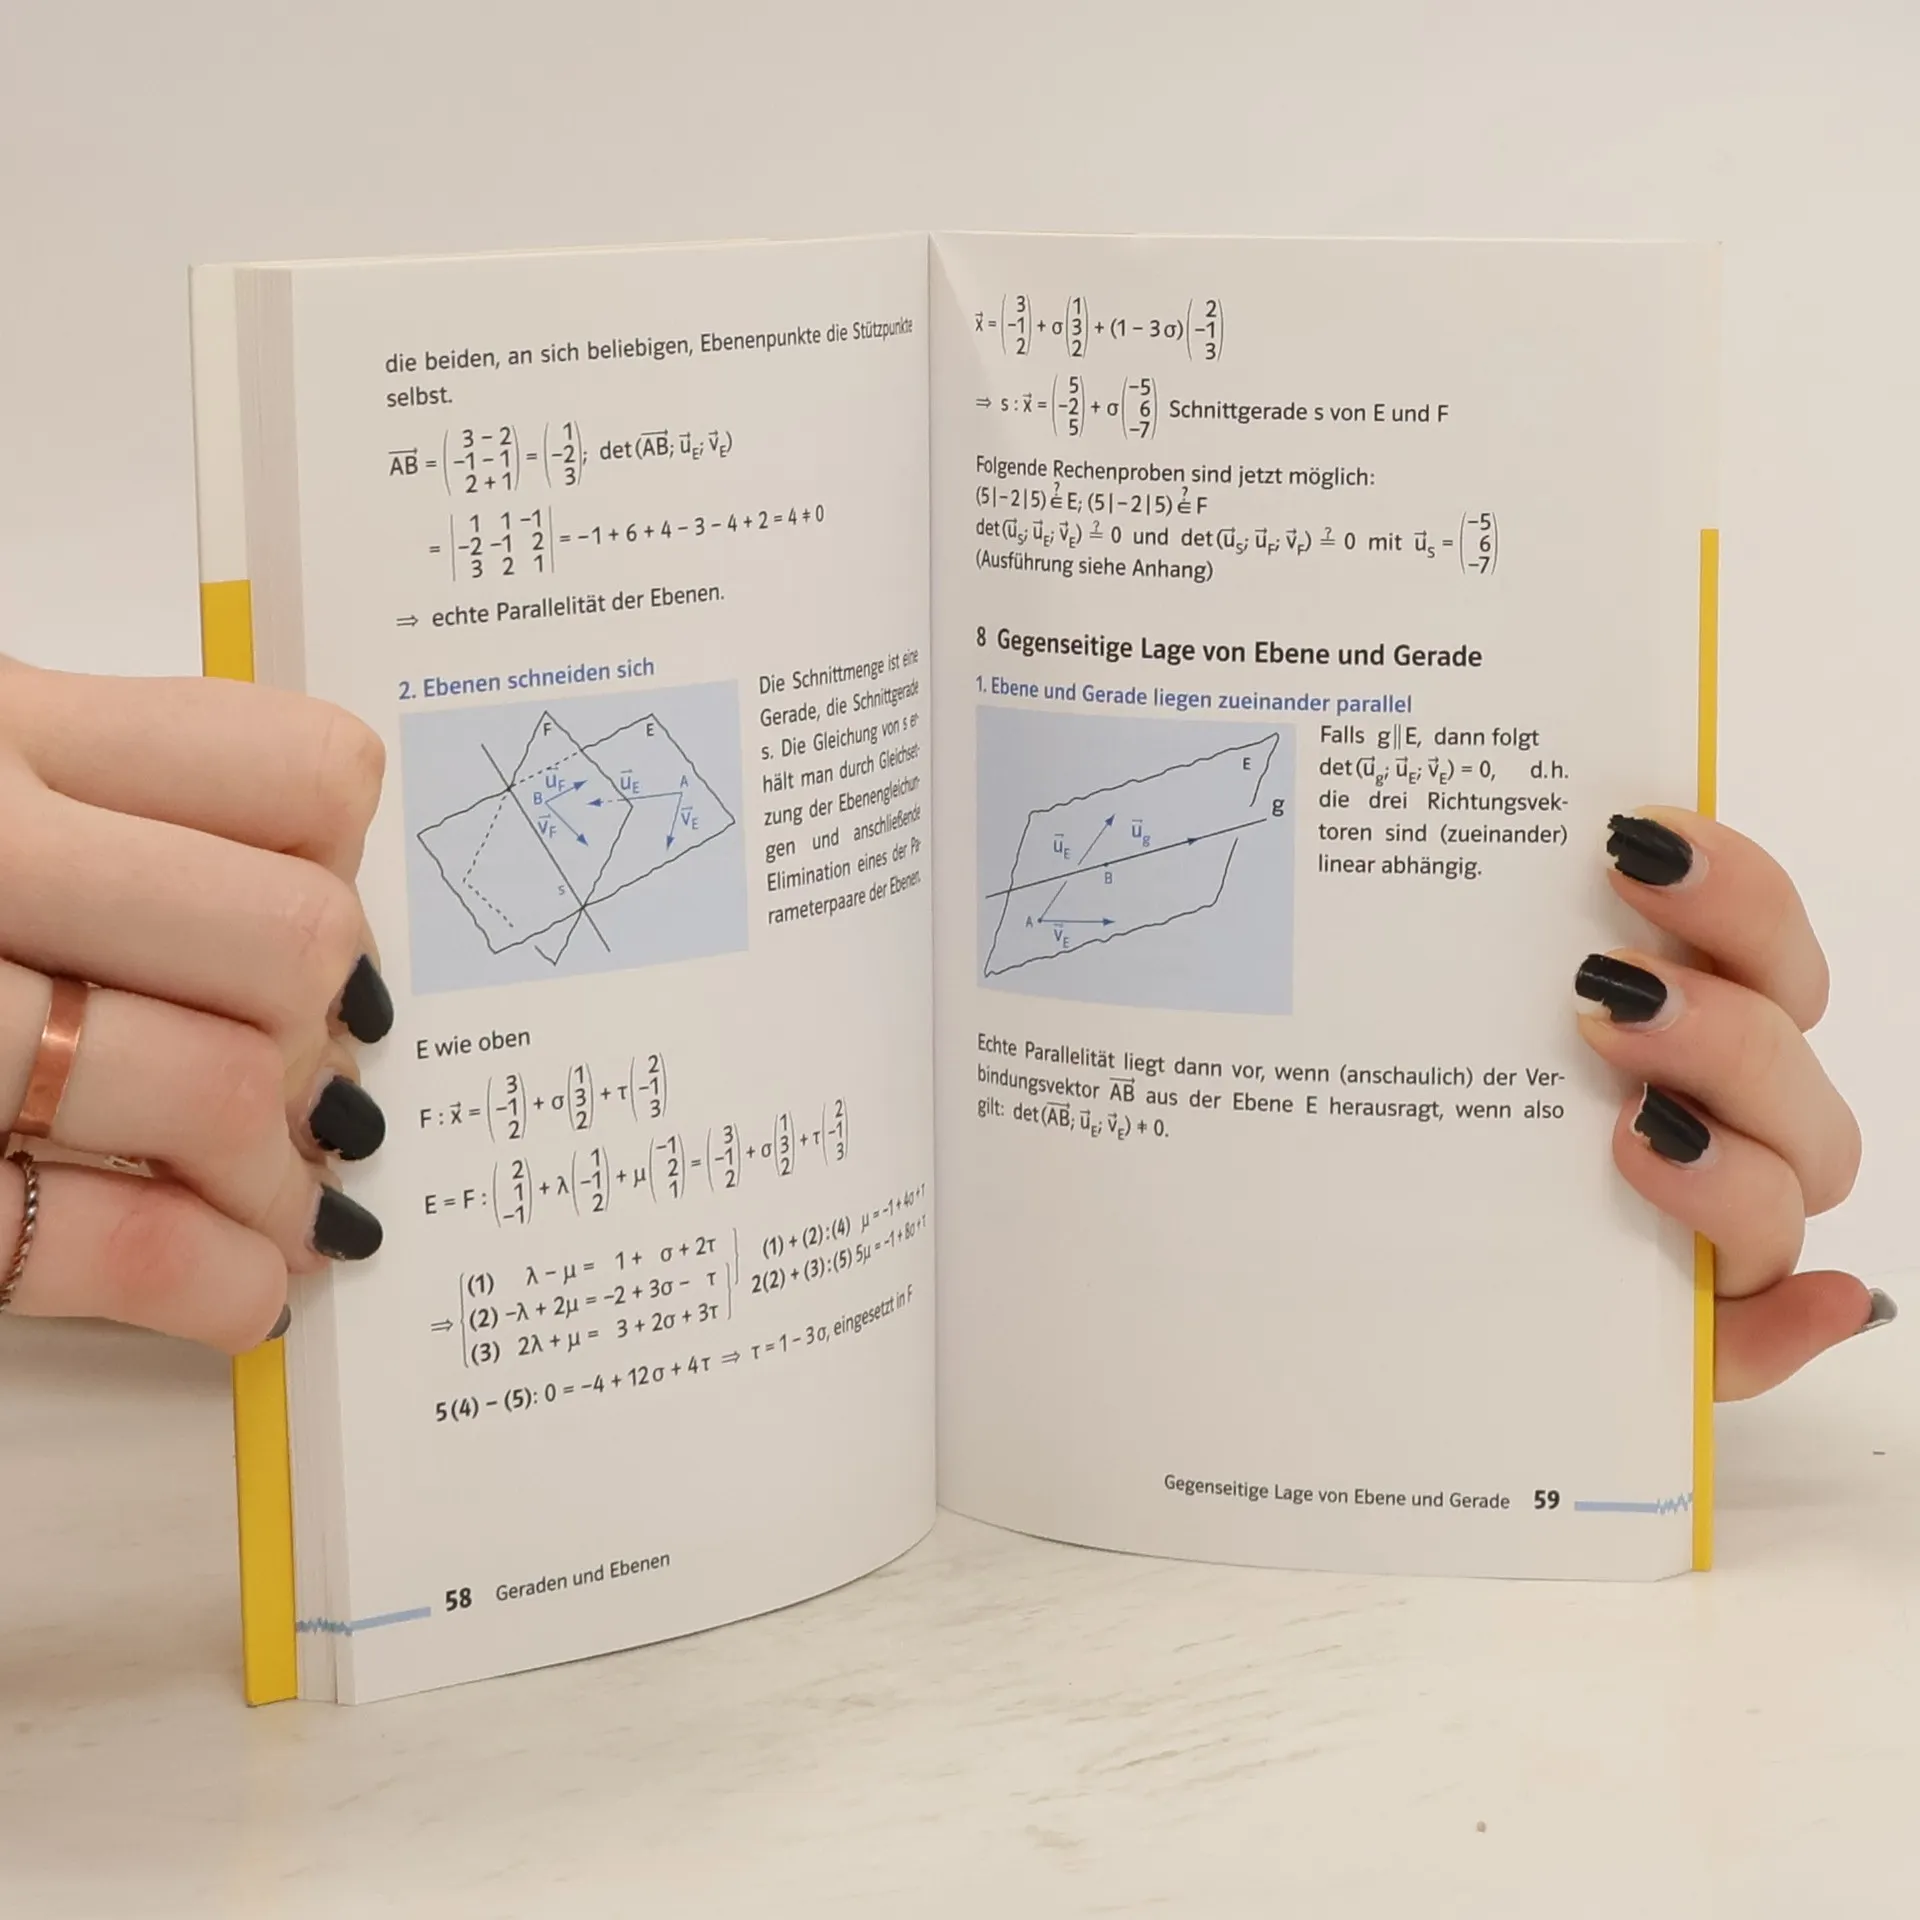 die beiden, an sich beliebigen, Ebenenpunkte die Stützpunkte
selbst.
AB⃗ = (3 − 2 | −1 − 1 | 2 + 1) = (1 | −2 | 3); det (AB⃗; u⃗_E; v⃗_E)
= |1 1 −1 | −2 −1 2 | 3 2 1| = −1 + 6 + 4 − 3 − 4 + 2 = 4 ≠ 0
⇒ echte Parallelität der Ebenen.
2. Ebenen schneiden sich
F E
u⃗_F u⃗_E A
B
v⃗_F v⃗_E
s
Die Schnittmenge ist eine
Gerade, die Schnittgerade
s. Die Gleichung von s er-
hält man durch Gleichset-
zung der Ebenengleichun-
gen und anschließende
Elimination eines der Pa-
rameterpaare der Ebenen.
E wie oben
F : x⃗ = (3 | −1 | 2) + σ (1 | 3 | 2) + τ (2 | −1 | 3)
E = F : (2 | 1 | −1) + λ (1 | −1 | 2) + μ (−1 | 2 | 1) = (3 | −1 | 2) + σ (1 | 3 | 2) + τ (2 | −1 | 3)
(1) λ − μ = 1 + σ + 2τ (1) + (2) : (4) μ = −1 + 4σ + τ
⇒ (2) −λ + 2μ = −2 + 3σ − τ 2(2) + (3) : (5) 5μ = −1 + 8σ + τ
(3) 2λ + μ = 3 + 2σ + 3τ
5(4) − (5): 0 = −4 + 12σ + 4τ ⇒ τ = 1 − 3σ, eingesetzt in F
58 Geraden und Ebenen
x⃗ = (3 | −1 | 2) + σ (1 | 3 | 2) + (1 − 3σ) (2 | −1 | 3)
⇒ s : x⃗ = (5 | −2 | 5) + σ (−5 | 6 | −7) Schnittgerade s von E und F
Folgende Rechenproben sind jetzt möglich:
(5|−2|5) ∈? E; (5|−2|5) ∈? F
det (u⃗_s; u⃗_E; v⃗_E) =? 0 und det (u⃗_s; u⃗_F; v⃗_F) =? 0 mit u⃗_s = (−5 | 6 | −7)
(Ausführung siehe Anhang)
8 Gegenseitige Lage von Ebene und Gerade
1. Ebene und Gerade liegen zueinander parallel
E
g
u⃗_E u⃗_g
B
A
v⃗_E
Falls g||E, dann folgt
det (u⃗_g; u⃗_E; v⃗_E) = 0, d.h.
die drei Richtungsvek-
toren sind (zueinander)
linear abhängig.
Echte Parallelität liegt dann vor, wenn (anschaulich) der Ver-
bindungsvektor AB⃗ aus der Ebene E herausragt, wenn also
gilt: det (AB⃗; u⃗_E; v⃗_E) ≠ 0.
Gegenseitige Lage von Ebene und Gerade 59